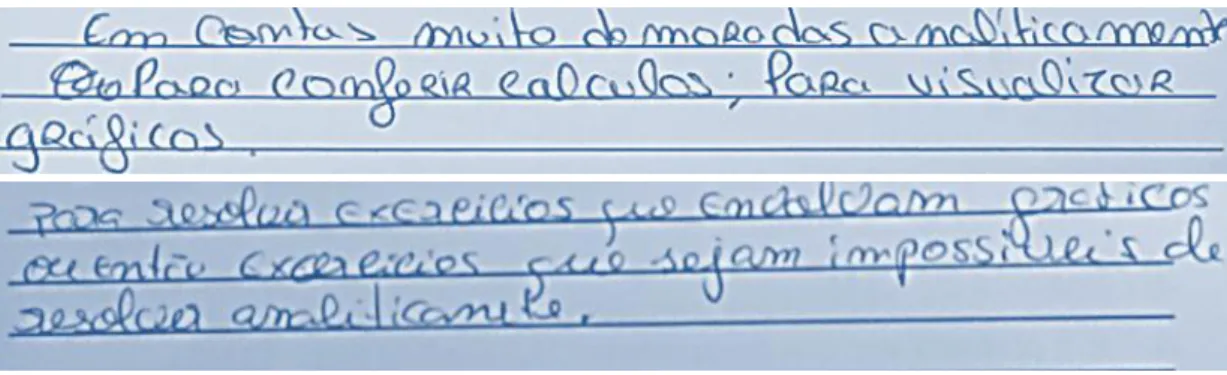 Em contas muito demoradas analiticamente
Ou para conferir calculos; Para visualizar
gráficos.
Para resolver excercicios que envolvam gráficos
ou então excercicios que sejam impossiveis de
resolver analiticamete.